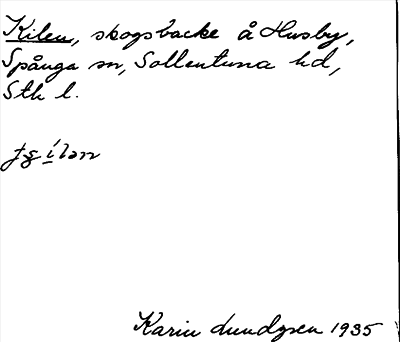 Kilen, skogsbacke å Husby,
Spånga sn, Sollentuna hd,
Sth l.
Karin Lundgren 1935